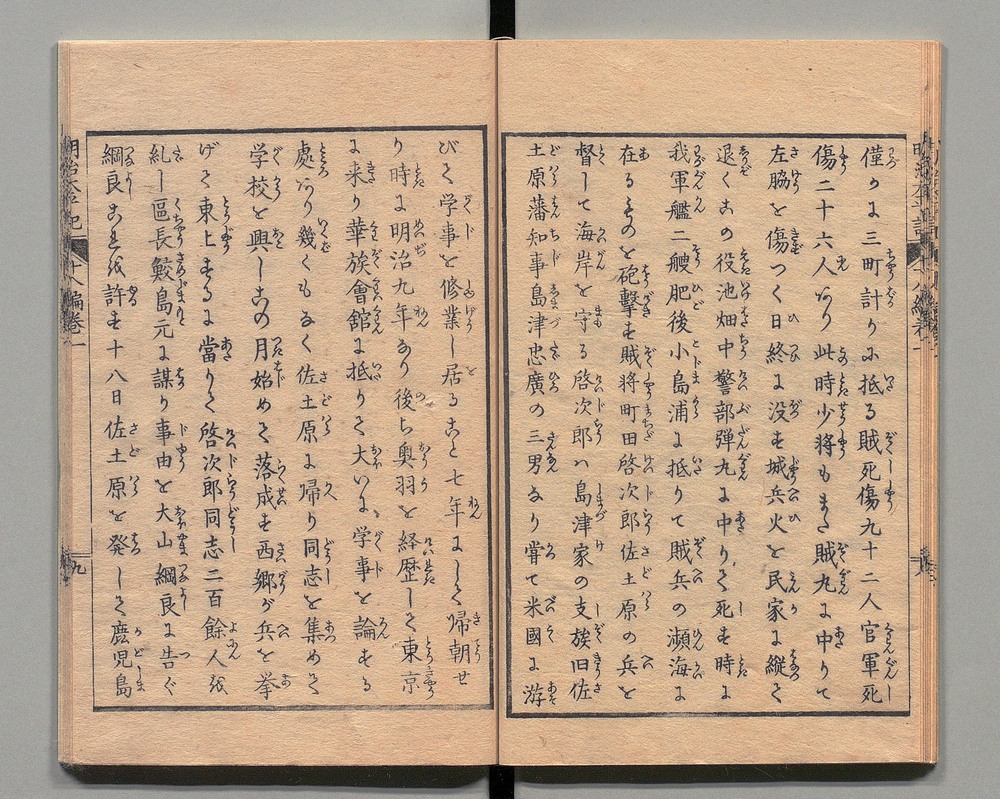 僅々に三町計りに抵る賊死傷九十二人官軍死
傷二十六人あり此時少将もまた賊丸に中りて
左脇を傷つく日終に没す城兵火を民家に縦て
退くこの役池畑中警部弾丸に中りて死す時に
我軍艦二艘肥後小島浦に抵りて賊兵の瀕海に
在るものを砲撃す賊将町田啓次郎佐土原の兵を
督して海岸を守る啓次郎ハ島津家の支族旧佐
土原藩知事島津忠廣の三男なり甞て米國に游
びて学事を修業し居ること七年にして帰朝せ
り時に明治九年なり後ち奥羽を経歴して東京
に来り華族會舘に抵りて大いに学事を論ずる
處あり幾くもなく佐土原に帰り同志を集めて
学校を興しこの月始めて落成す西郷が兵を挙
げて東上するに當りて啓次郎同志二百餘人を
糺し區長鮫島元に謀り事由を大山綱良に告ぐ
綱良これを許す十八日佐土原を発して鹿児島
明治太平記
十八編巻一
九